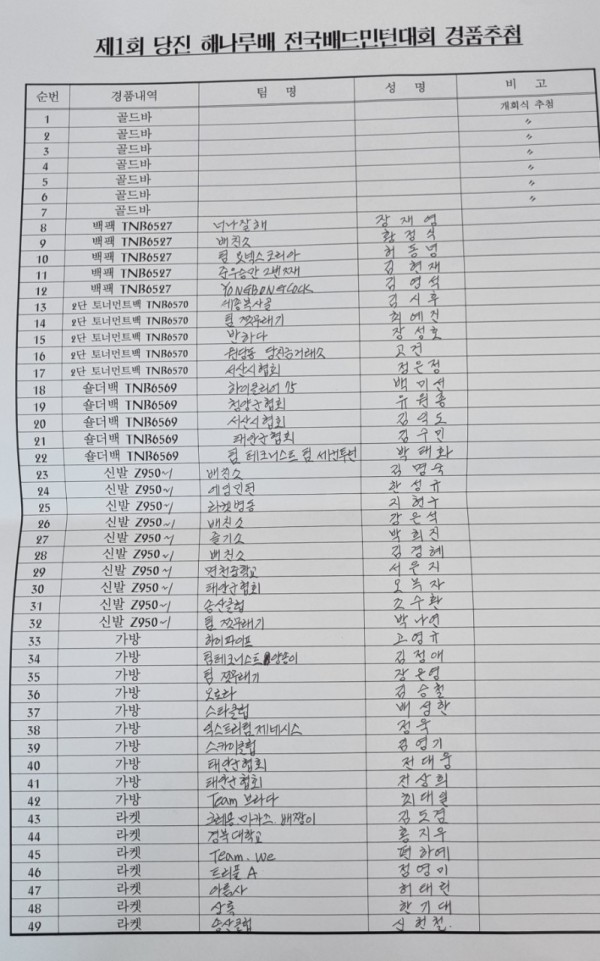 제1회 당진 해나루배 전국배드민턴대회 경품추첨
순번 경품내역 팀 명 성 명 비 고
1 골드바 개회식 추첨
2 골드바 〃
3 골드바 〃
4 골드바 〃
5 골드바 〃
6 골드바 〃
7 골드바 〃
8 백팩 TNB6527 너나잘해 장재영
9 백팩 TNB6527 배친소 황정식
10 백팩 TNB6527 팀 요넥스코리아 허동녕
11 백팩 TNB6527 준우승만 2번째 김현재
12 백팩 TNB6527 YONGBONGCOCK 김영석
13 2단 토너먼트백 TNB6570 세종복사골 김시후
14 2단 토너먼트백 TNB6570 팀 쩌우래기 최예진
15 2단 토너먼트백 TNB6570 반하다 장성호
16 2단 토너먼트백 TNB6570 원당동 당진금거래소 고건
17 2단 토너먼트백 TNB6570 서산시협회 정은정
18 숄더백 TNB6569 하이클리어 75 백미선
19 숄더백 TNB6569 청양군협회 유원종
20 숄더백 TNB6569 서산시협회 김덕도
21 숄더백 TNB6569 태안군협회 김수민
22 숄더백 TNB6569 팀 테크니스트 팀 세컨투원 박태화
23 신발 Z950~1 배친소 김명수
24 신발 Z950~1 에업민턴 한성규
25 신발 Z950~1 라켓번동 지현구
26 신발 Z950~1 배친소 강은석
27 신발 Z950~1 즐기소 박희진
28 신발 Z950~1 배친소 김경혜
29 신발 Z950~1 면천중학교 서문지
30 신발 Z950~1 태안군협회 오복자
31 신발 Z950~1 송산클럽 조수환
32 신발 Z950~1 팀 쩌우래기 박나연
33 가방 하이파이프 고영규
34 가방 팀테크니스트 야옹이 김정애
35 가방 팀 쩌우래기 장은영
36 가방 오로라 김승철
37 가방 스타클럽 배성한
38 가방 익스트림 제네시스 정욱
39 가방 스카이클럽 김영기
40 가방 태안군협회 전대웅
41 가방 태안군협회 전상희
42 가방 Team 브라다 최대월
43 라켓 크레용.마카스.배짱이 김도겸
44 라켓 경북대학교 홍지우
45 라켓 Team.we 편하예
46 라켓 트리플A 정영미
47 라켓 아름사 허태린
48 라켓 상록 한기대
49 라켓 송산클럽 신현철.